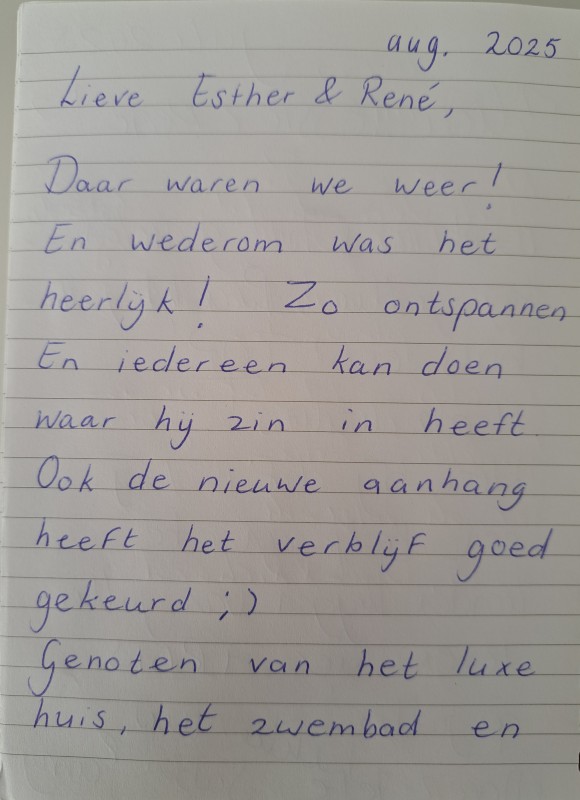 aug. 2025
Lieve Esther & René,
Daar waren we weer!
En wederom was het
heerlijk! Zo ontspannen
En iedereen kan doen
waar hij zin in heeft.
Ook de nieuwe aanhang
heeft het verblijf goed
gekeurd ;)
Genoten van het luxe
huis, het zwembad en